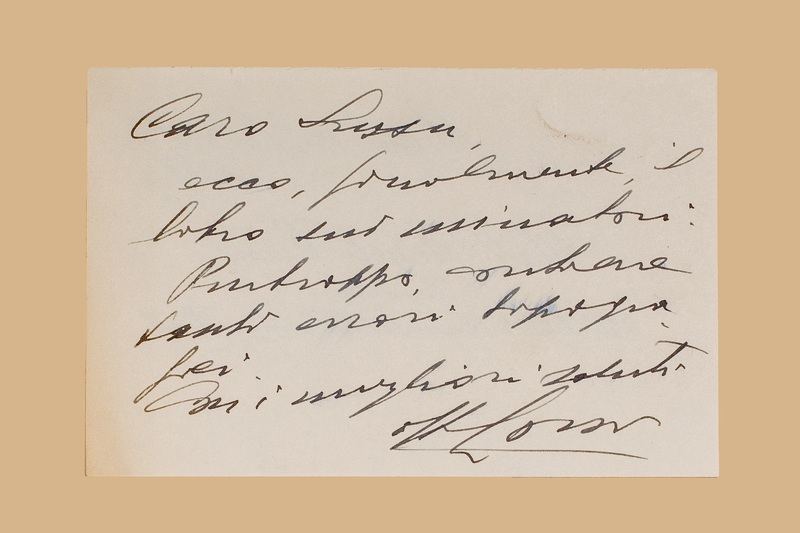 Caro Lussu,
ecco, finalmente, il
libro sui minatori.
Purtroppo, contiene
tanti errori tipogra-
fici.
Coi migliori saluti